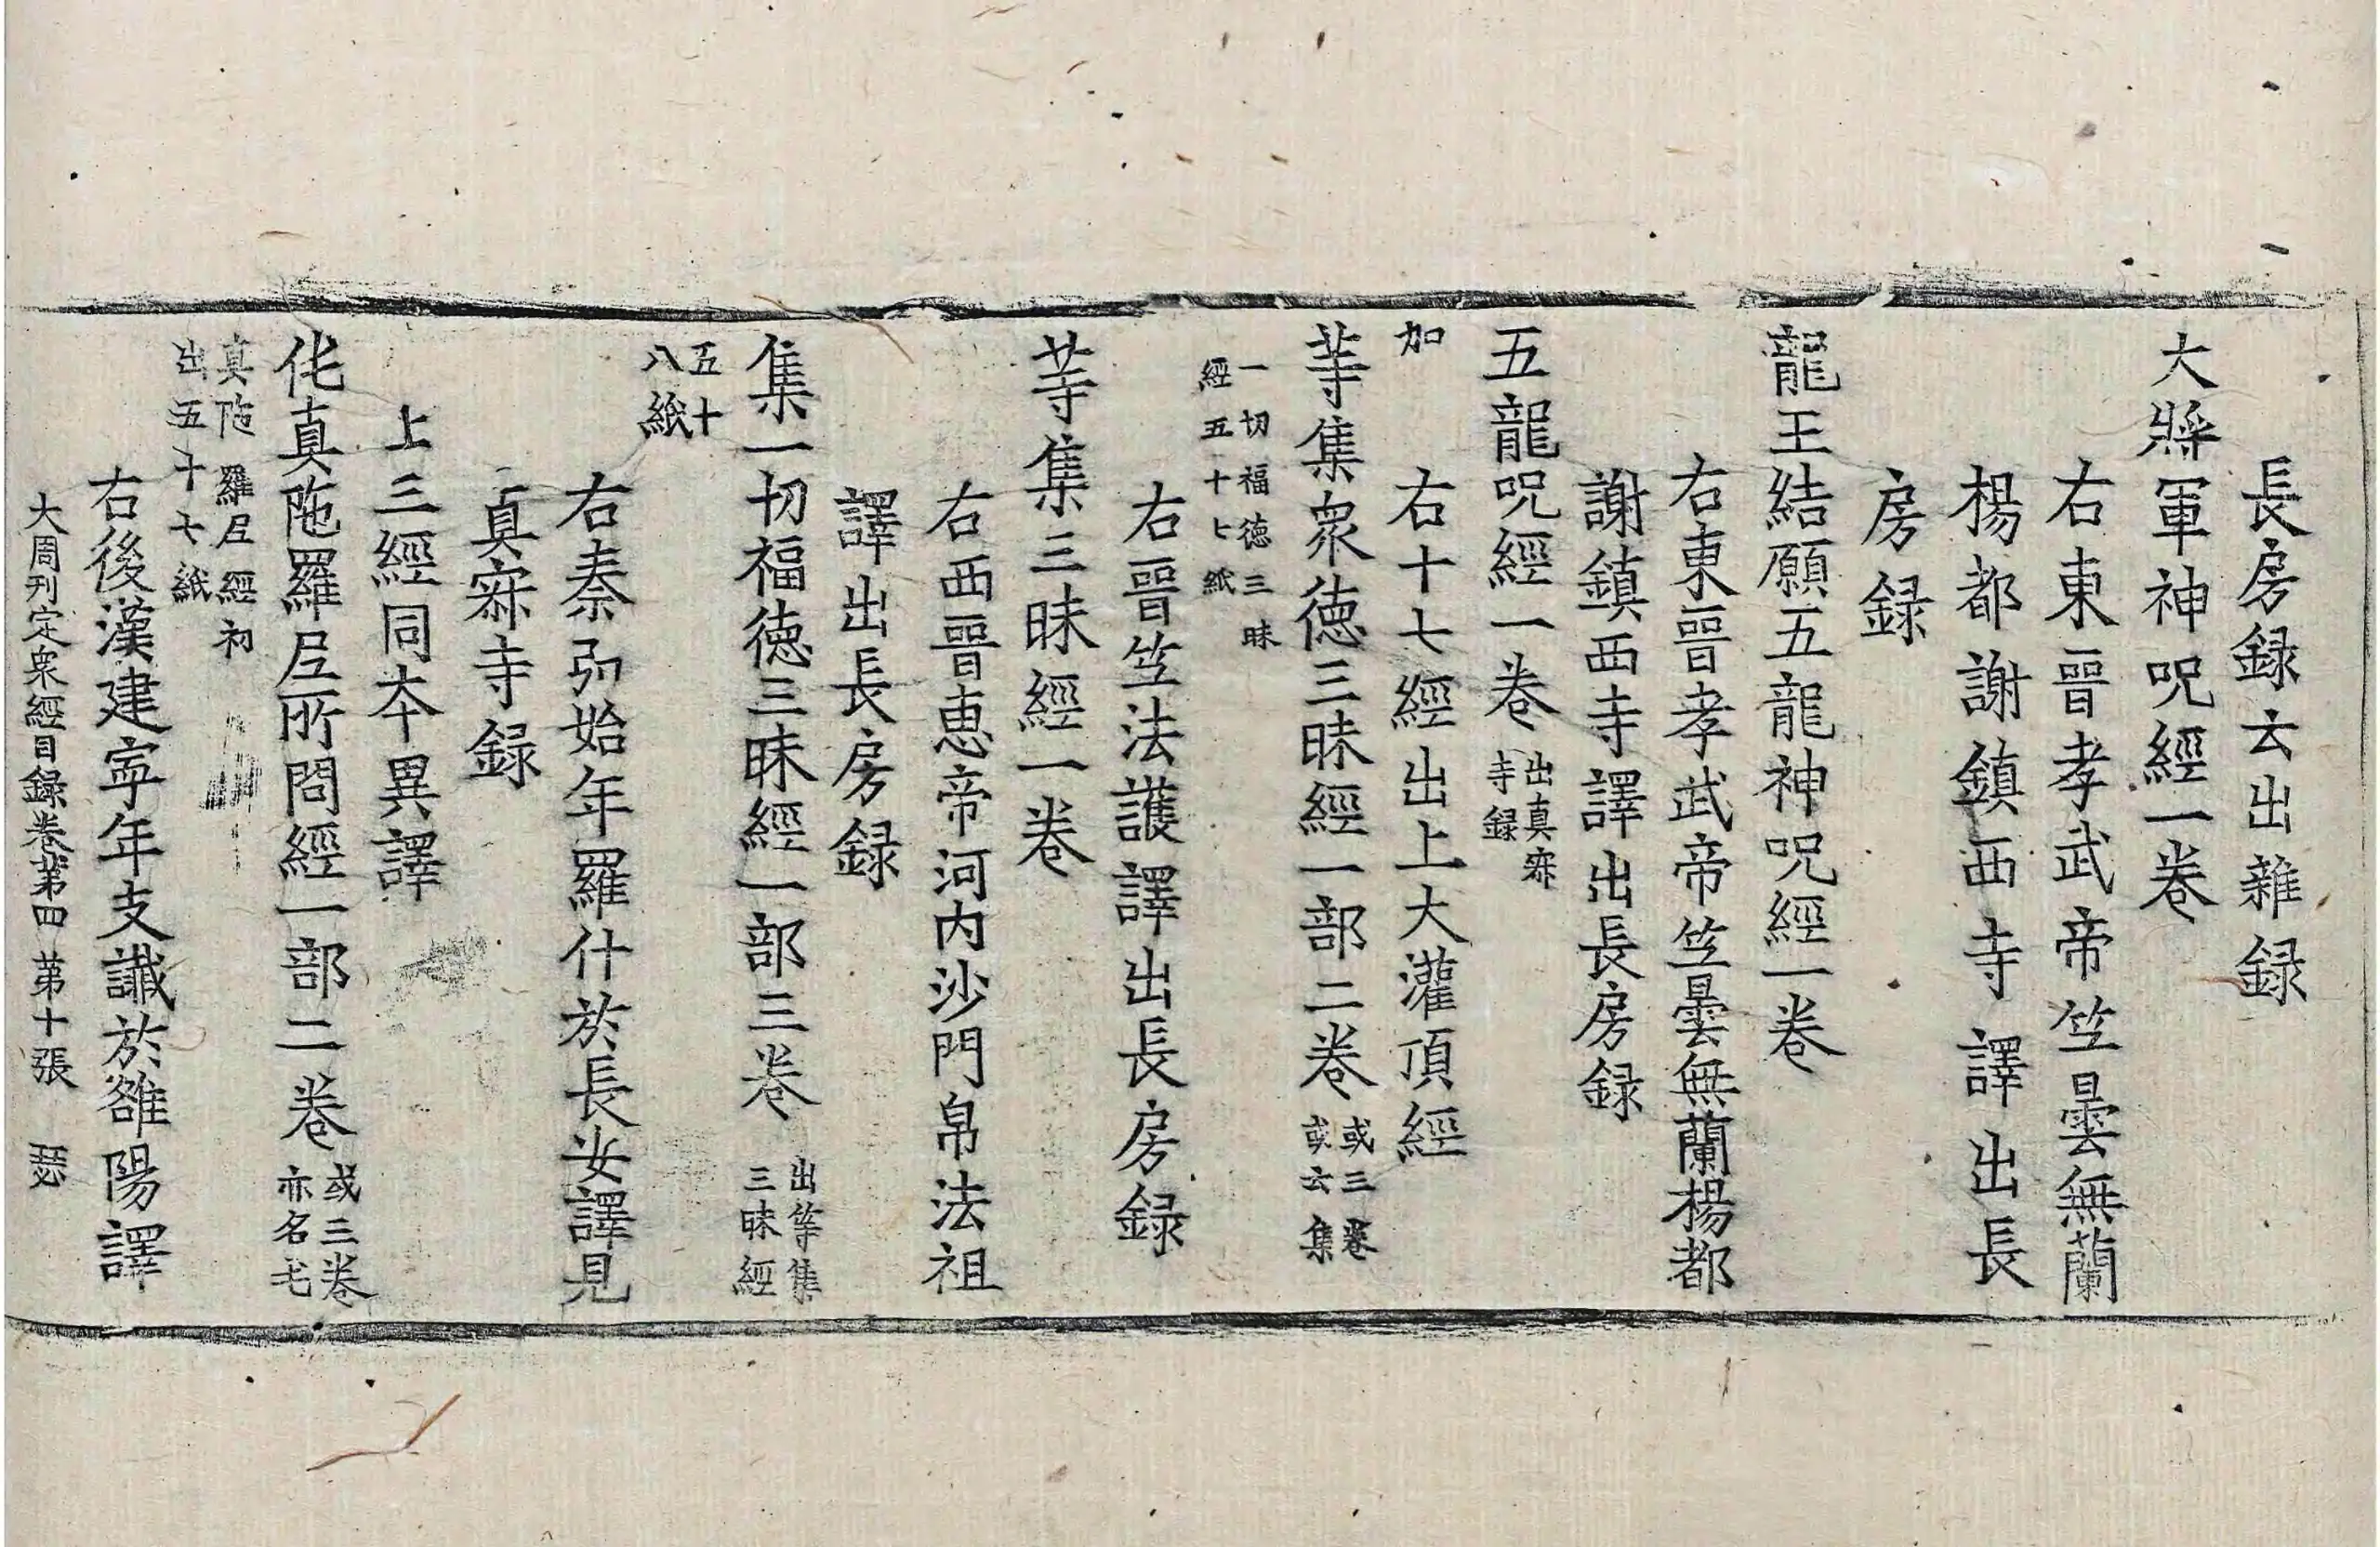 長房録云出雜録
大將軍神呪經一卷
右東晉孝武帝竺曇無蘭
楊都謝鎮西寺譯出長
房録
龍王結願五龍神呪經一卷
右東晉孝武帝竺曇無蘭楊都
謝鎮西寺譯出長房録
五龍呪經一卷出真寂
寺録
右十七經出上大灌頂經
䓁集衆徳三昧經一部二卷或三卷
或云集
加
一切福徳三昧
經五十七紙
右晉竺法護譯出長房録
䓁集三昧經一卷
右西晉恵帝河内沙門帛法祖
譯出長房録
集一切福徳三昧經一部三卷出等集
三昧經
五十
八紙
右秦弘始年羅什於長安譯見
真寂寺録
上三經同本異譯
伅真陁羅尼所問經一部二卷或三卷
亦名屯
真陁羅尼經初
出五十七紙
右後漢建寧年支讖於雒陽譯
大周刊定衆經目録卷苐四 苐十張 瑟